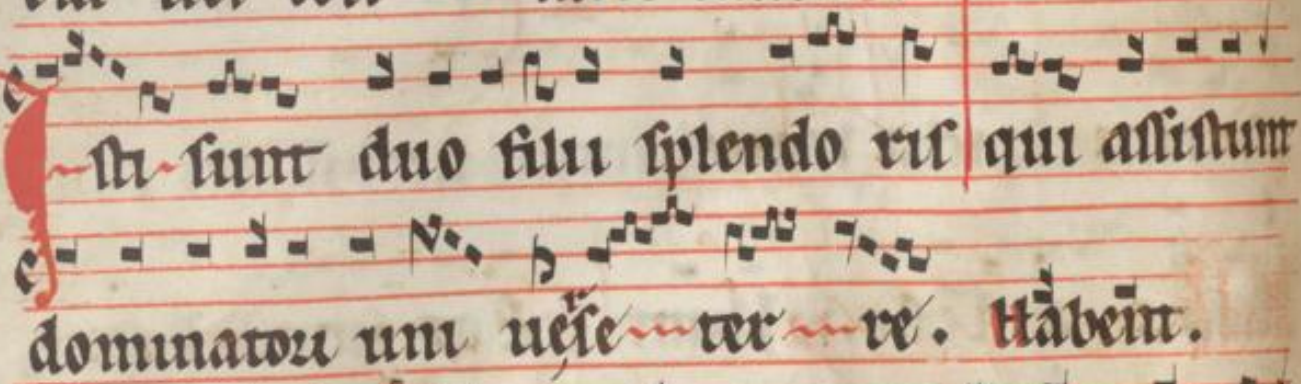 Isti sunt duo filii splendoris qui assistunt
dominatori universe terre. Habent.